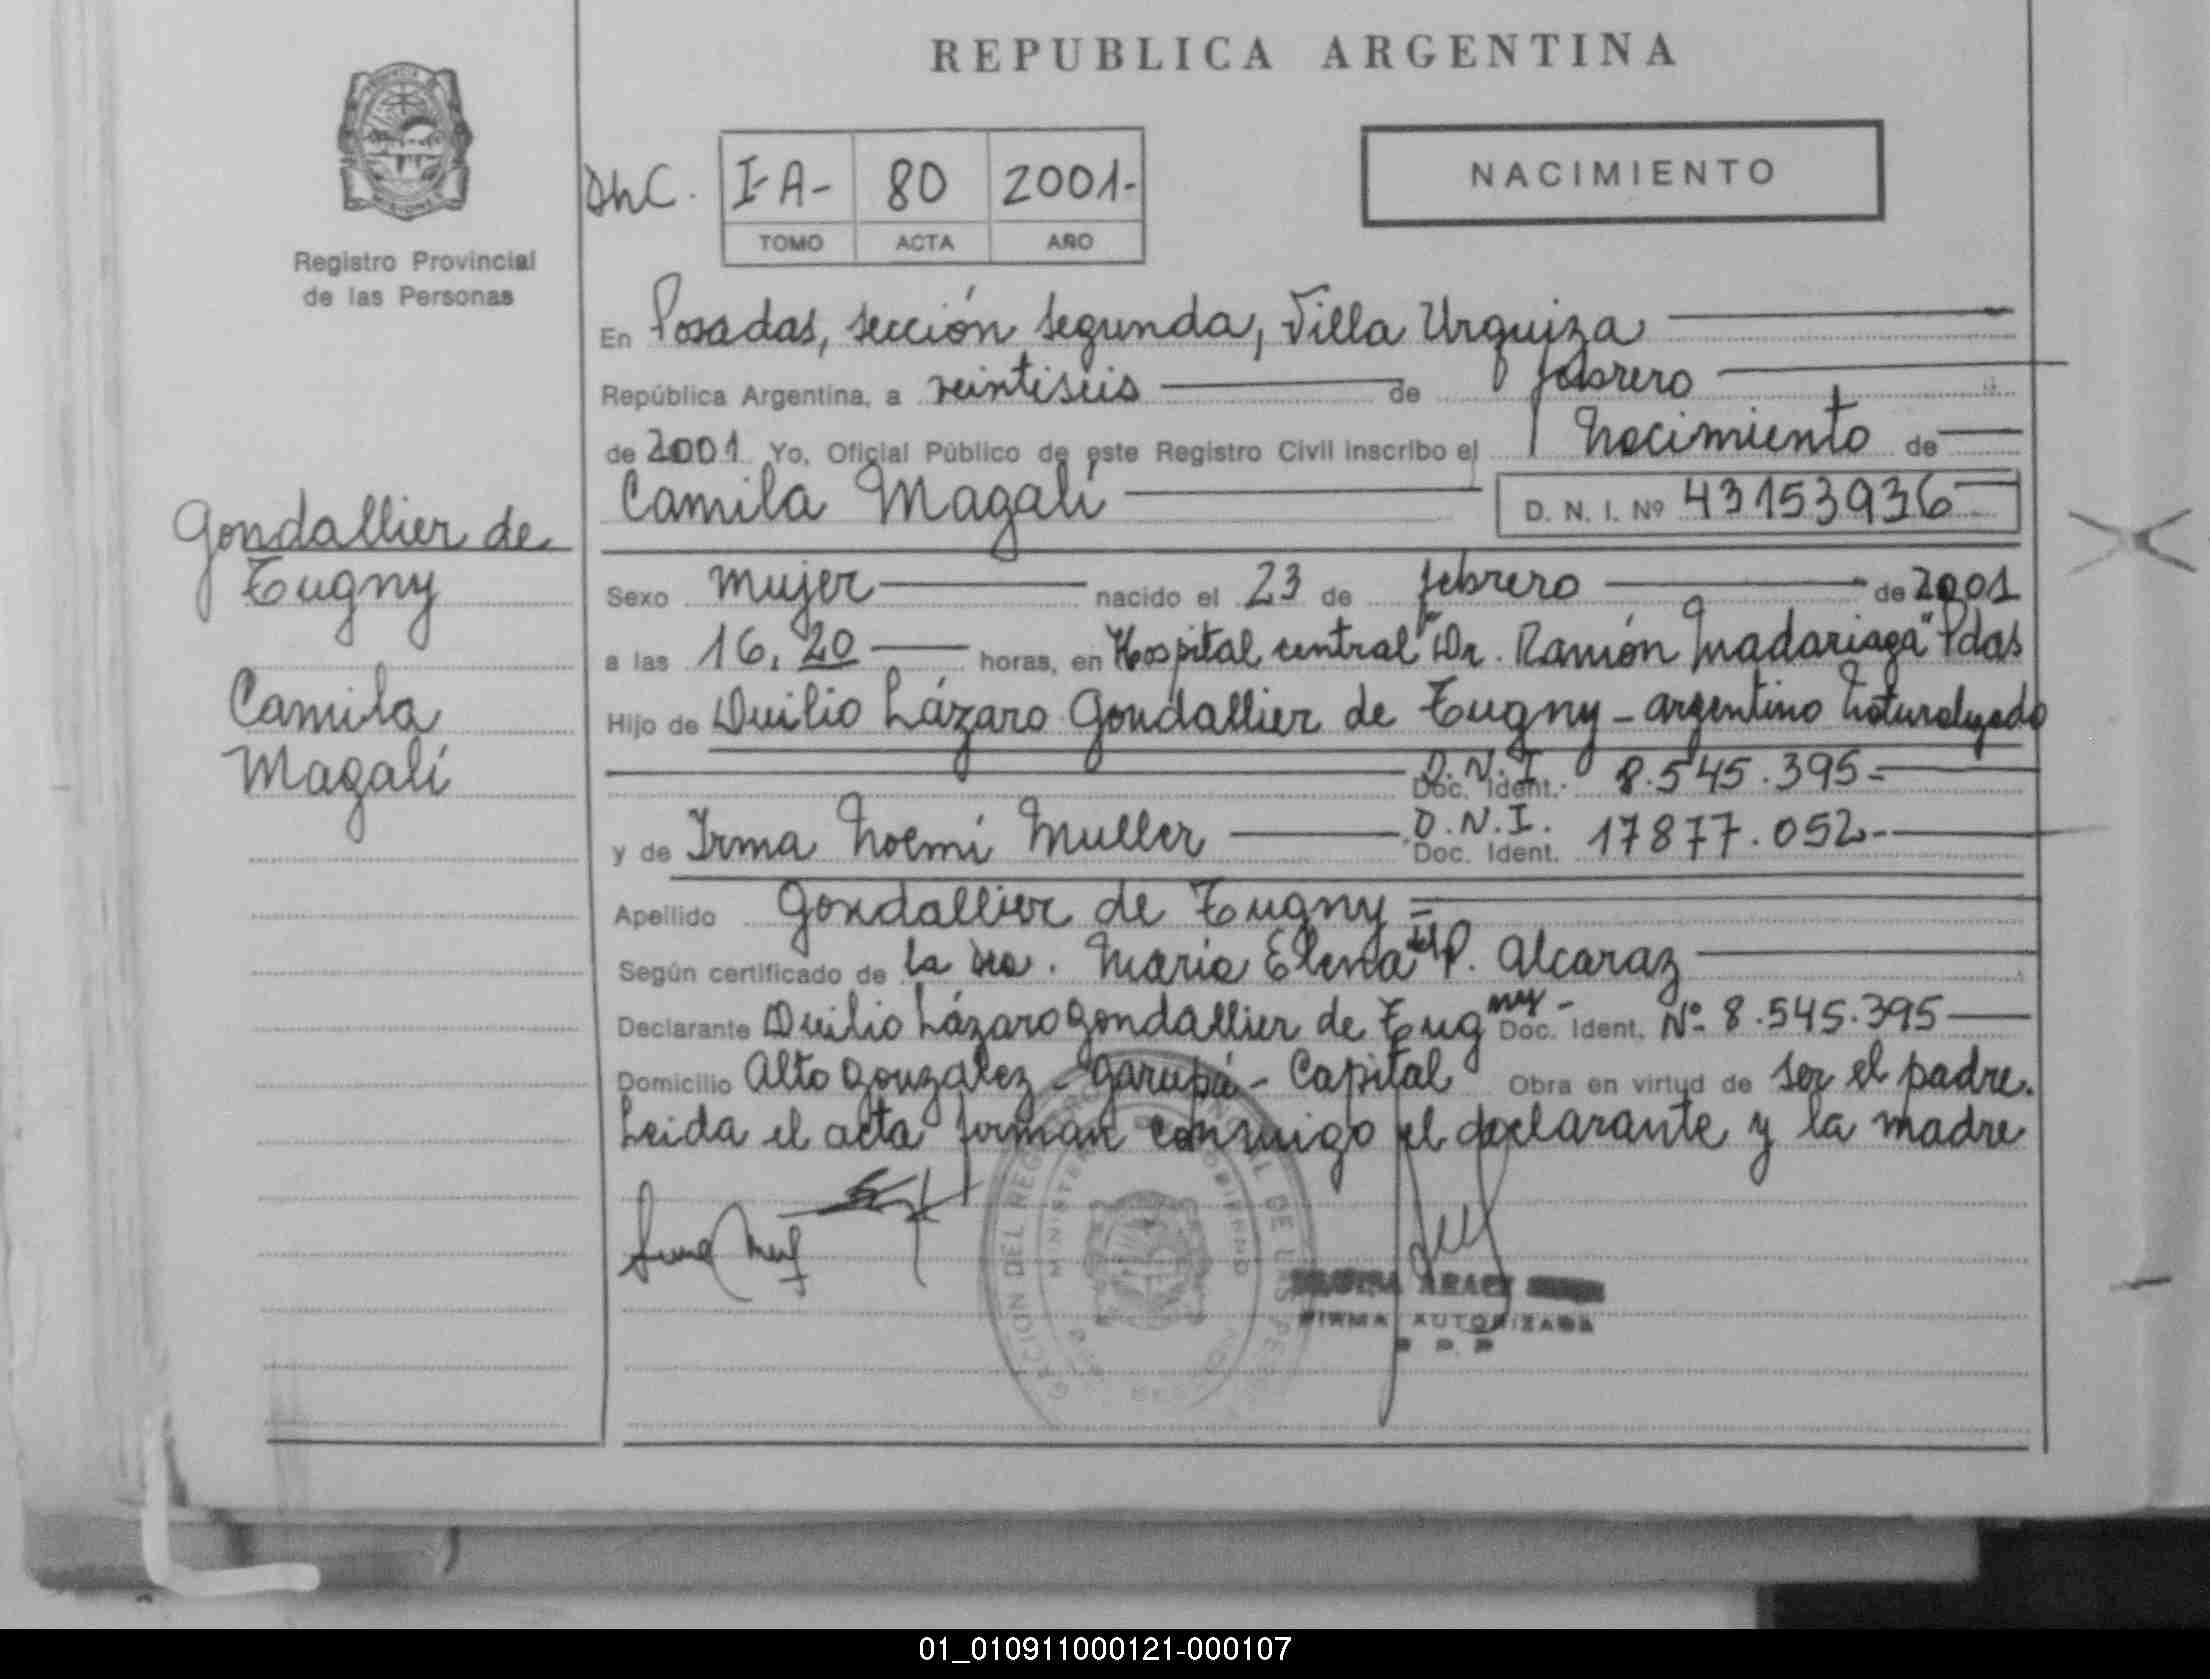 REPUBLICA ARGENTINA
I-A- 80 2001-
TOMO ACTA AÑO
NACIMIENTO
Registro Provincial
de las Personas
En Posadas, sección segunda, Villa Urquiza
República Argentina, a veintiseis de febrero
de 2001 Yo, Oficial Público de este Registro Civil inscribo el Nacimiento de
Camila Magalí D. N. I. Nº 43153936
Gondallier de
Tugny
Camila
Magalí
Sexo mujer nacido el 23 de febrero de 2001
a las 16,20 horas, en Hospital central "Dr. Ramón Madariaga" Pdas
Hijo de Duilio Lázaro Gondallier de Tugny - argentino Naturalizado
D.N.I
Doc. Ident. 8.545.395-
D.N.I.
y de Irma Noemí Muller Doc. Ident. 17877.052-
Apellido Gondallier de Tugny =
Según certificado de la Dra. Maria Elena del P. Alcaraz
Declarante Duilio Lázaro Gondallier de Tugny - Doc. Ident. Nº 8.545.395
Domicilio Alto Gonzalez - Garupá - Capital Obra en virtud de ser el padre.
Leida el acta firman conmigo el declarante y la madre
FIRMA AUTORIZADA
01_010911000121-000107